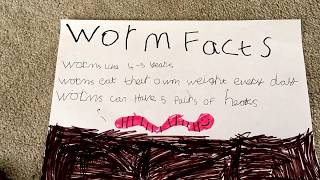 Worm Facts
worms 4-5
worms eat their own weight every day
Worms can have 5 Pairs of hearts